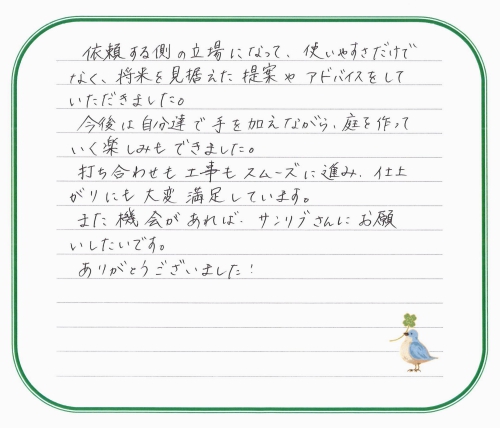 依頼する側の立場になって、使いやすさだけで
なく、将来を見据えた提案やアドバイスをして
いただきました。
今後は自分達で手を加えながら、庭を作って
いく楽しみもできました。
打ち合わせも工事もスムーズに進み、仕上
がりにも大変満足しています。
また機会があれば、サンリブさんにお願
いしたいです。
ありがとうございました!